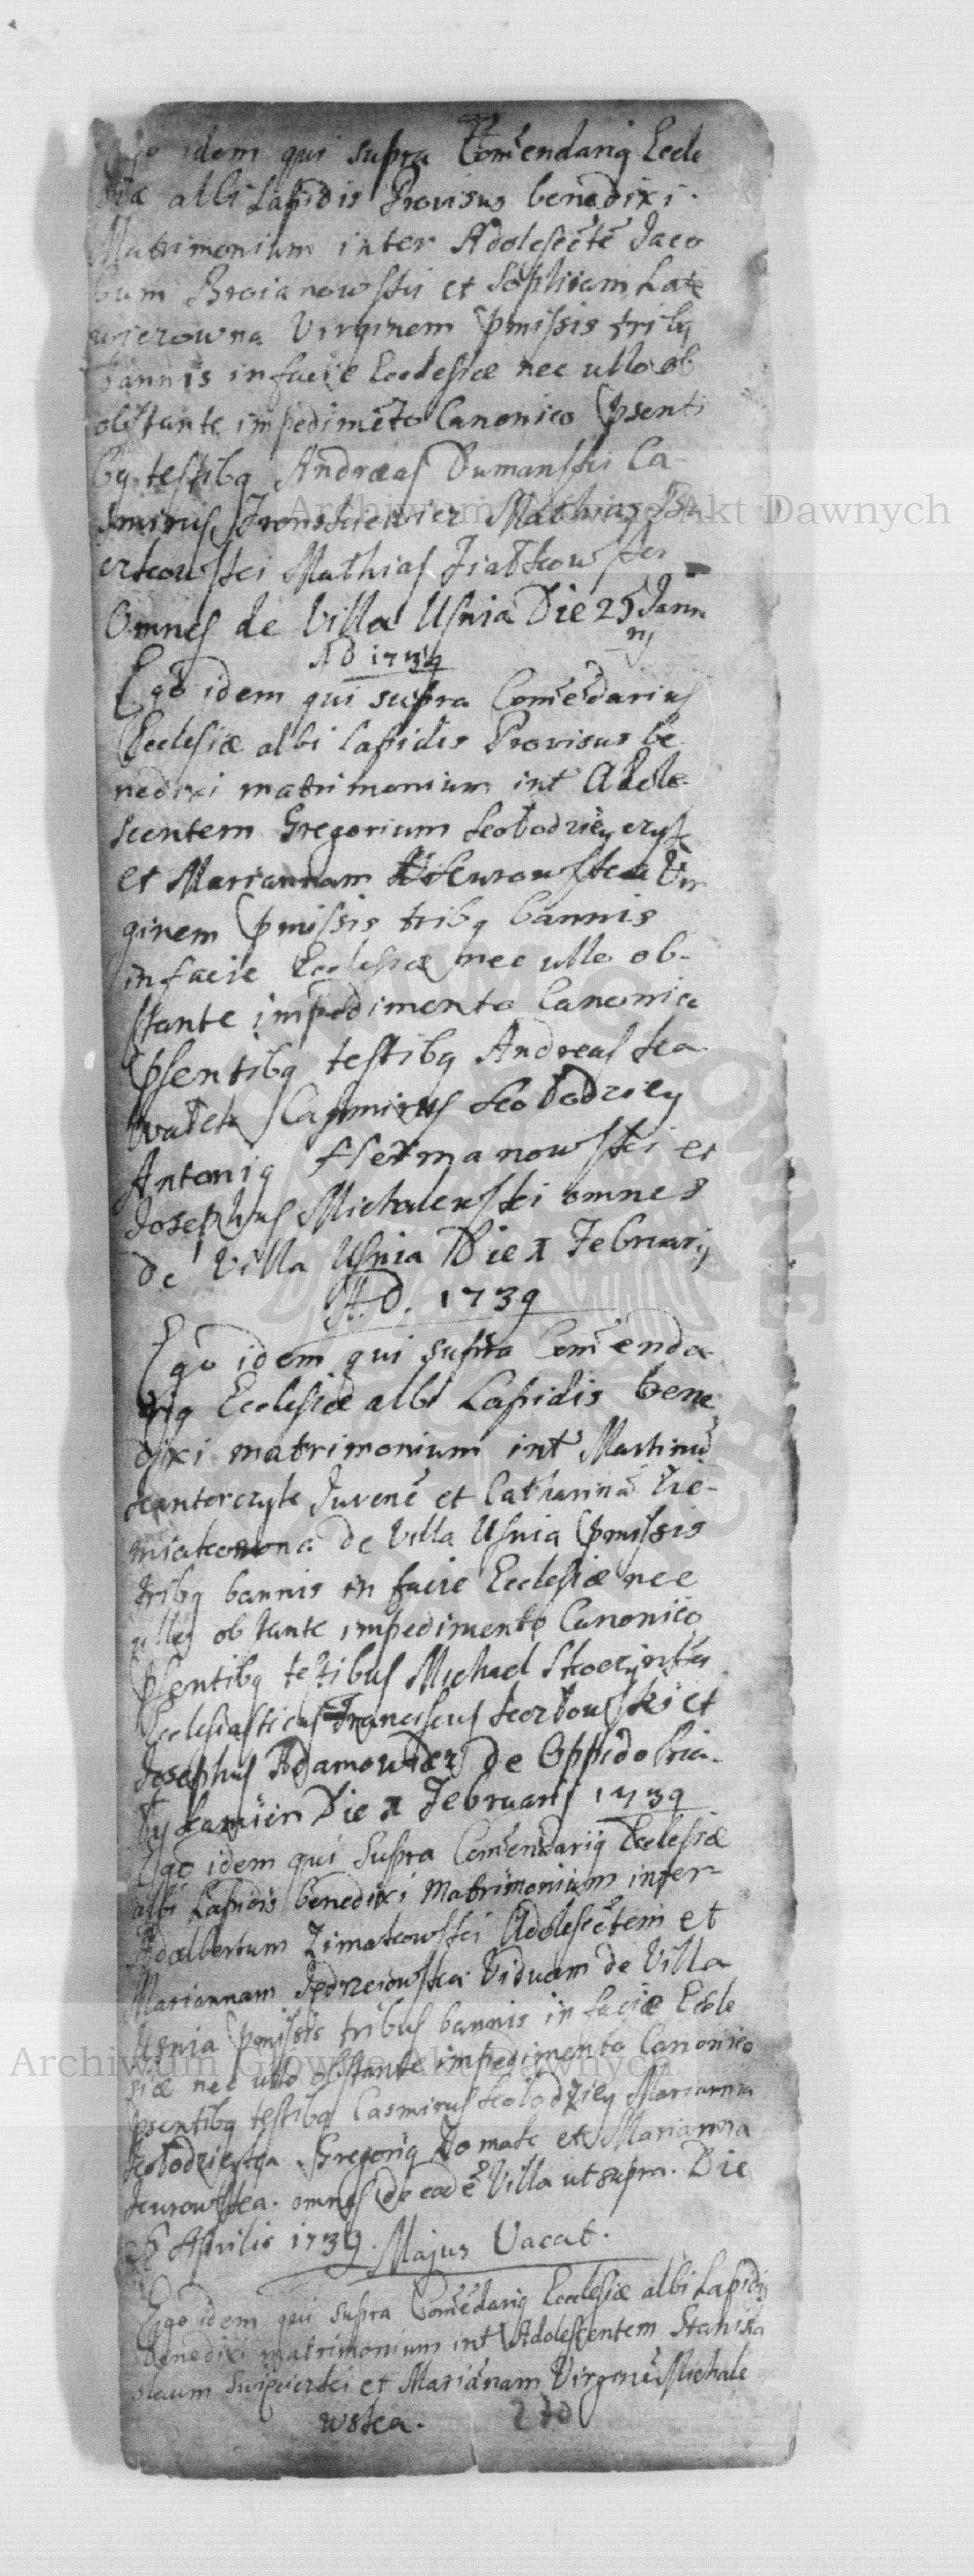 Ego idem qui supra Com̃endariꝗ Eccle
siæ albi Lapidis Provisus benedixi
Matrimonium inter Adolescẽtẽ Jaco
bum Broianowski et Sophiam Late
wierowna Virginem pmissis tribꝗ
bannis in facie Ecclesiæ nec ullo ob
obstante impedimẽto Canonico psenti
bꝗ testibꝗ Andræas Dumanski Ca
smirus Mathias
Mathias
Omnes de Villa Usnia Die 25 Janu
rij
AD 1739
Ego idem qui supra Com̃ẽdarius
Ecclesiæ albi lapidis Provisus be
nedixi matrimonium int Adole
scentem Gregorium kołodzieyczyk
et Mariannam Vir
ginem pmissis tribꝗ bannis
in facie Ecclesiæ nec ullo ob-
stante impedimento Canonico
psentibꝗ testibꝗ Andreas ko
walek Casmirus kołodziey
Antoniꝗ Hermanowski et
Josephus Michalewski omnes
de Villa Usnia Die 1 Februarij
A.D. 1739
Ego idem qui supra Com̃enda
riꝗ Ecclesiæ albi Lapidis bene
dixi matrimonium int Martinũ
kantorczyk Juvenẽ et Catharinã Zie-
miakowna de Villa Usnia pmissis
tribꝗ bannis in facie Ecclesiæ nec
ullo obstante impedimento Canonico
psentibꝗ testibus Michael
Ecclesiasticus Franciscus et
Josephus Adamowicz de Oppido Bia
ły kamien Die 1 Februarij 1739
Ego idem qui supra Com̃endariꝗ Ecclesiæ
albi Lapidis benedixi Matrimonium inter
Adalbertum Zimakowski Adolescẽtem et
Mariannam Jędrzeiowska Viduam de Villa
Usnia pmissis tribus bannis in faciæ Eccle
siæ nec ullo obstante impedimento Canonico
psentibꝗ testibꝗ Casmirus kołodziey Marianna
kołodzieyka Gregoriꝗ Tomak et Marianna
kurowska. omnes de eadẽ Villa ut supra. Die
Aprilis 1739. Majus Vacat.
Ego idem qui supra Com̃ẽdariꝗ Ecclesiæ albi Lapidis
benedixi matrimonium int Adolescentem Stanisła
slaum et Mariãnam Virginẽ Michale
wska.
270
Archiwum Główne Akt Dawnych
Archiwum Główne Akt Dawnych